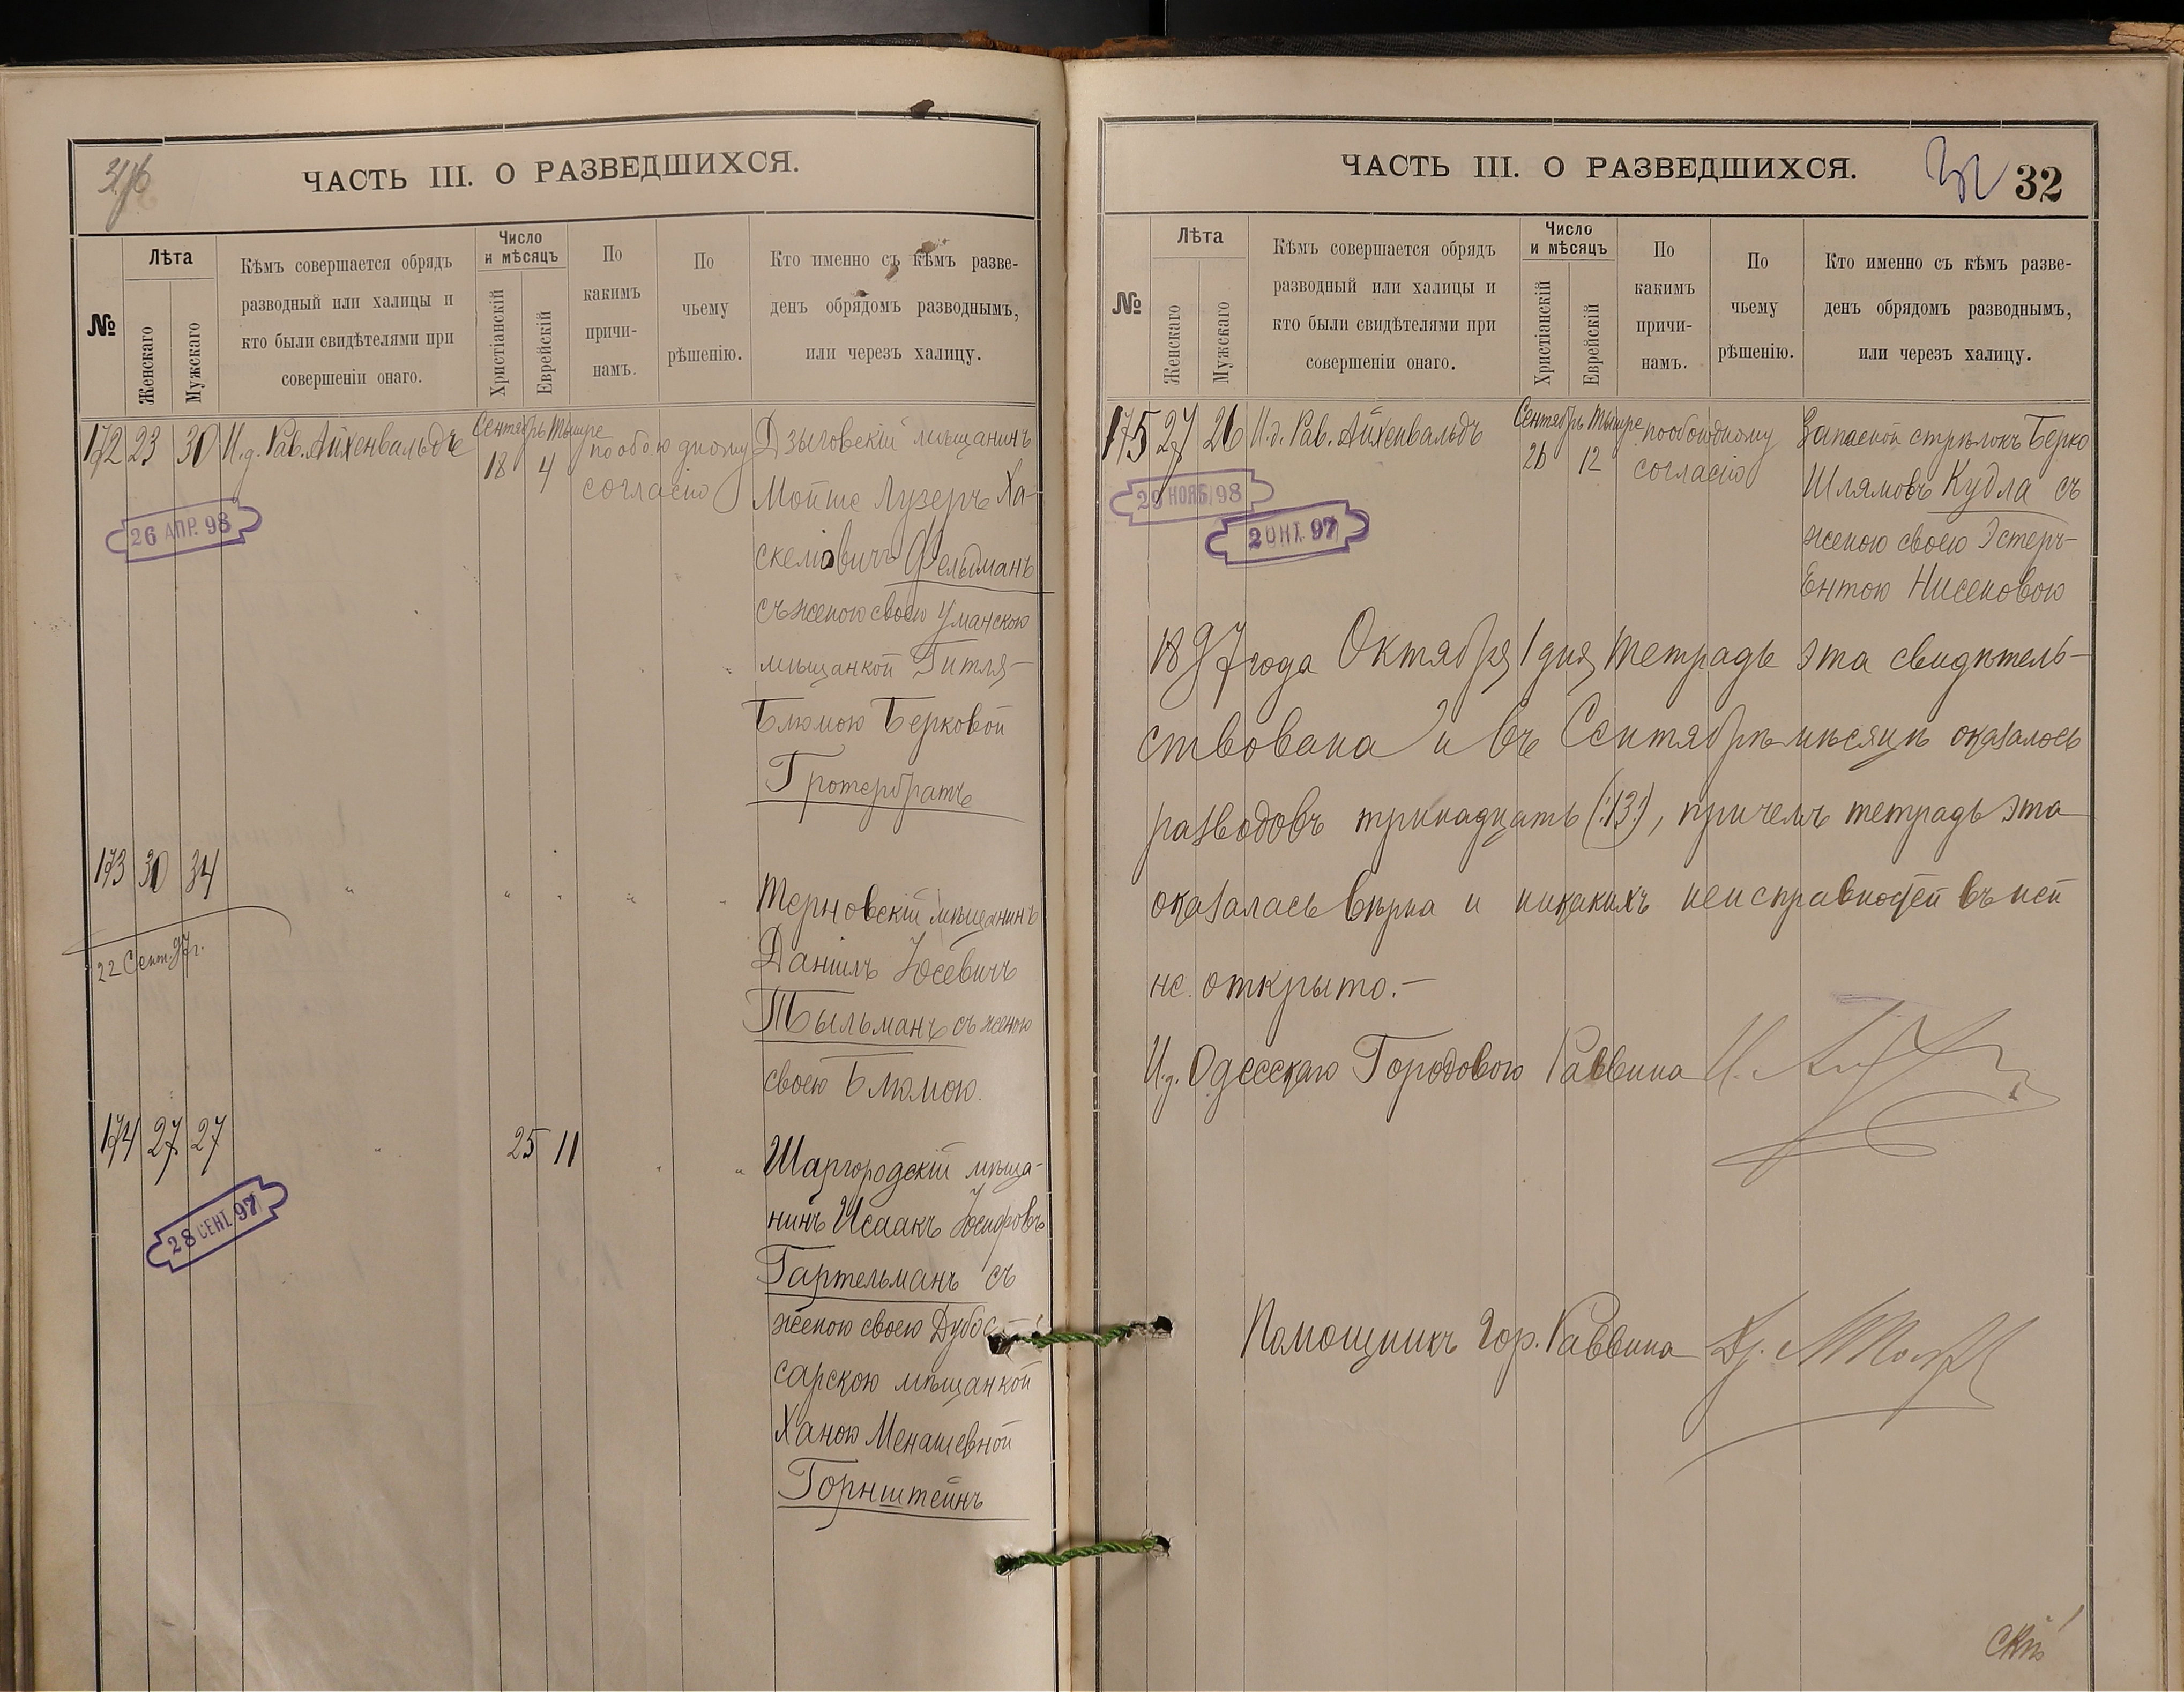 ЧАСТЬ III. О РАЗВЕДШИХСЯ.
№
Лѣта
Женскаго
Мужскаго
Кѣмъ совершается обрядъ
разводный или халицы и
кто были свидѣтелями при
совершеніи онаго.
Число
и мѣсяцъ
Христіанскій
Еврейскій
По
какимъ
причи-
намъ.
По
чьему
рѣшенію.
Кто именно съ кѣмъ разве-
денъ обрядомъ разводнымъ,
или черезъ халицу.
172 23 30 И.д. Рав. Айхенвальдъ
Сентябрь Тышре
18 4
по обоюдному
согласію
Дзыговскій мѣщанинъ
Мойше Лузеръ Ха-
скеліовичъ Фельдманъ
съ женою своею Уманскою
мѣщанкой Гитля-
Блюмою Берковой
Гротербратъ
26 АПР. 98
173 30 34 " " " " "
Терновскій мѣщанинъ
Даніилъ Юсевичъ
Тыльманъ съ женою
своею Блюмою.
22 Сент. 97 г.
174 27 27 " 25 11 " "
Шаргородскій мѣща-
нинъ Исаакъ Іосифовъ
Гартельманъ съ
женою своею Дубос-
сарскою мѣщанкой
Ханою Менашевной
Горнштейнъ
28 СЕНТ. 97
ЧАСТЬ III. О РАЗВЕДШИХСЯ.
32 32
№
Лѣта
Женскаго
Мужскаго
Кѣмъ совершается обрядъ
разводный или халицы и
кто были свидѣтелями при
совершеніи онаго.
Число
и мѣсяцъ
Христіанскій
Еврейскій
По
какимъ
причи-
намъ.
По
чьему
рѣшенію.
Кто именно съ кѣмъ разве-
денъ обрядомъ разводнымъ,
или черезъ халицу.
175 27 26 И.д. Рав. Айхенвальдъ
Сентябрь Тышре
26 12
по обоюдному
согласію
Запасной стрѣлокъ Берко
Шлямовъ Кудла съ
женою своею Эстеръ-
Ентою Нисеновою
29 НОЯБ. 98
2 ОКТ. 97
1897 года Октября 1 дня тетрадь эта свидѣтель-
ствована и въ Сентябрѣ мѣсяцѣ оказалось
разводовъ тринадцать (:13:), причемъ тетрадь эта
оказалась вѣрна и никакихъ неисправностей въ ней
не открыто.-
И.д. Одесскаго Городового Раввина
Помощникъ Гор. Раввина Др.
скій